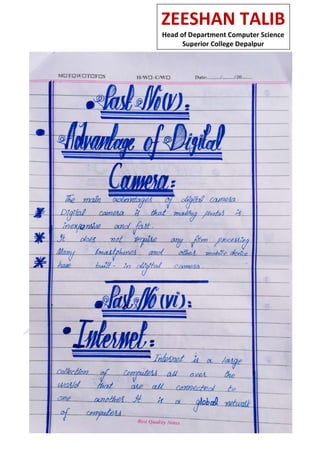 ZEESHAN TALIB
Head of Department Computer Science
Superior College Depalpur
H/W C/W Date: / /20
Part No(v):
Advantage of Digital
Camera:
The main advantages of digital camera
Digital camera is that making photos is
inexpensive and fast.
It does not require any film processing
Many smartphones and other mobile device
have built-in digital camera
Part No (vi):
Internet:
Internet is a large
collection of computers all over the
world that are all connected to
one another. It is a global network
of computers
Best Quality Notes